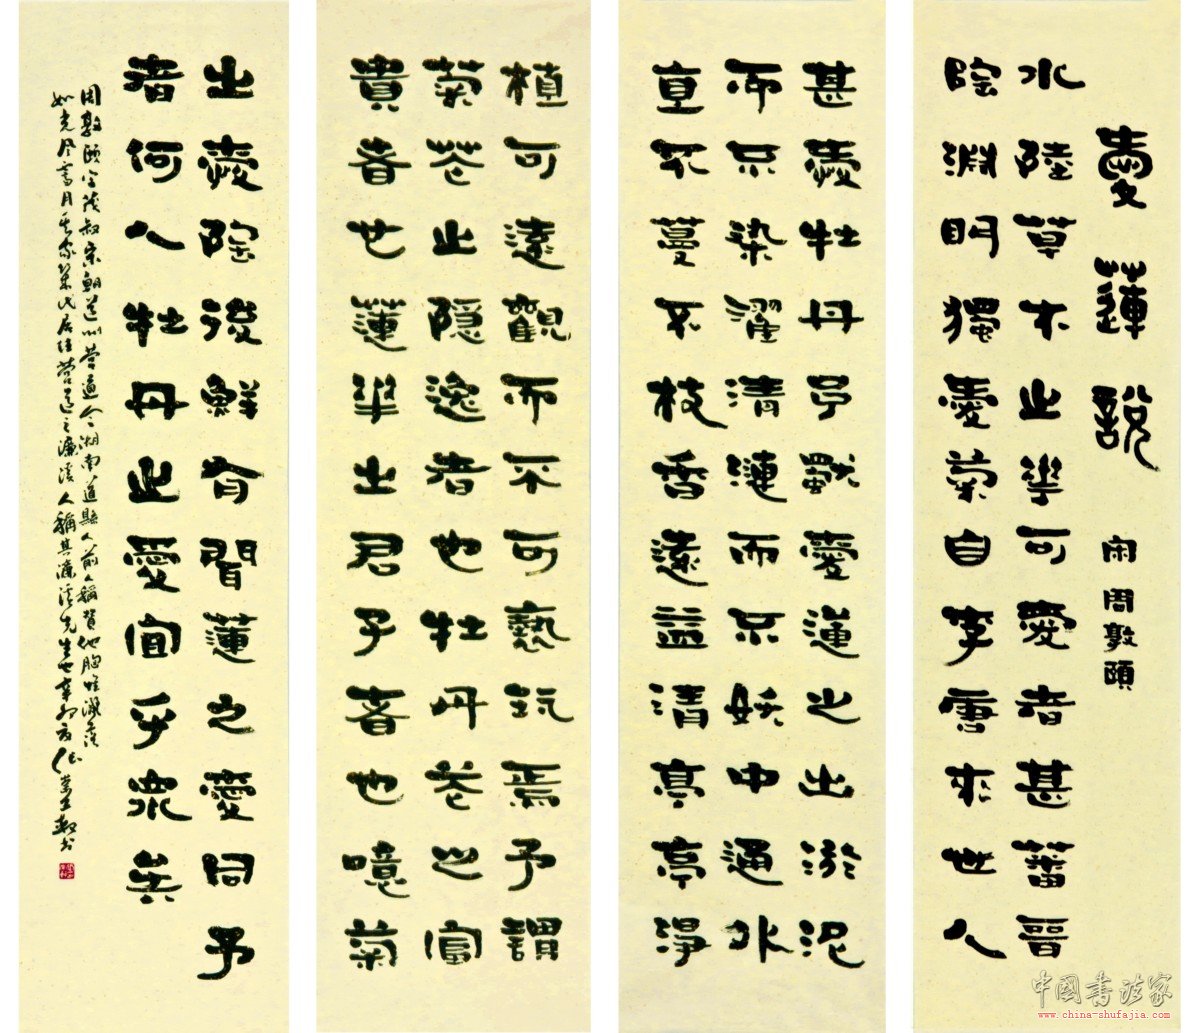 愛蓮說
宋周敦頤
水陸草木之華可愛者甚蕃晉
陶淵明獨愛菊自李唐來世人
甚愛牡丹予獨愛蓮之出淤泥
而不染濯清漣而不妖中通外
直不蔓不枝香遠益清亭亭淨
植可遠觀而不可褻玩焉予謂
菊花之隱逸者也牡丹花之富
貴者也蓮華之君子者也噫菊
之愛陶後鮮有聞蓮之愛同予
者何人牡丹之愛宜乎衆矣
周敦頤字茂叔宋朝道州營道今湖南道縣人前人稱贊他胸懷灑落
如光風霽月其家居住營道之濂溪人稱其濂溪先生也辛卯夏書
中国书法家
www.china-shufajia.com